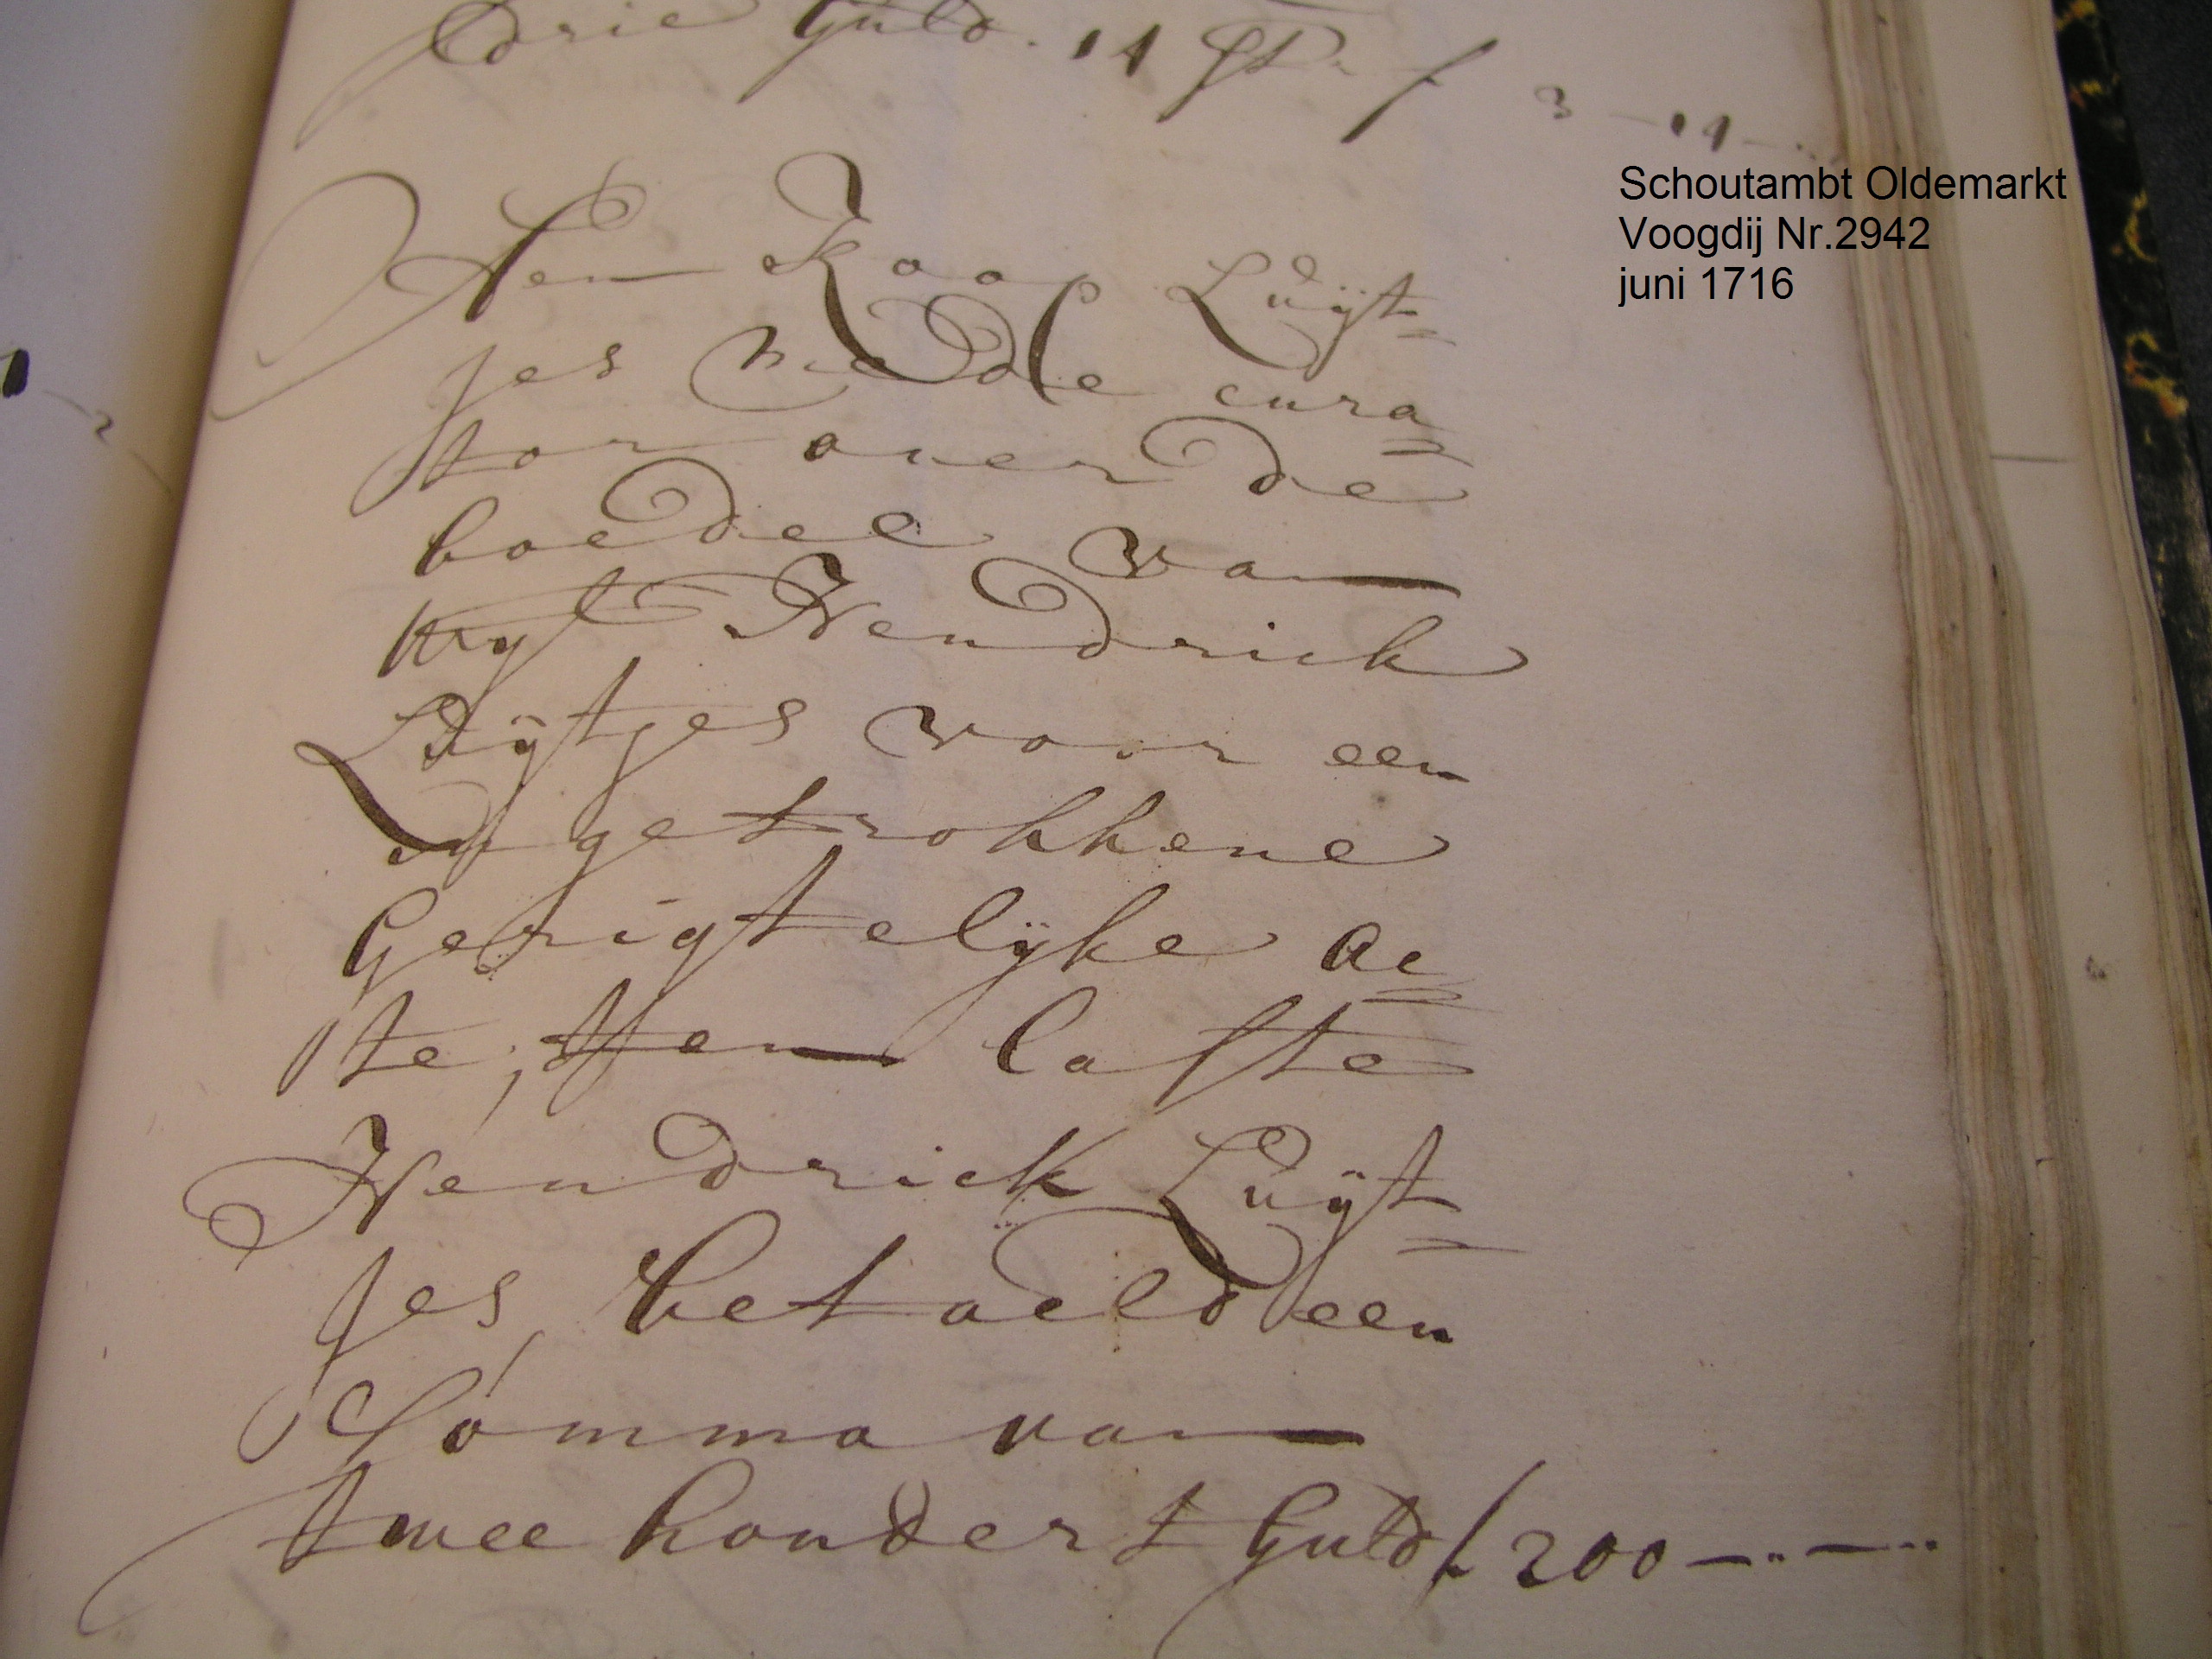 drie Guld. 14 st. f 3-14-..
Schoutambt Oldemarkt
Voogdij Nr.2942
juni 1716
Aen Koop Luÿt=
jes mede cura=
tor over de
boedel van
wyl Hendrick
Luÿtjes voor een
in getrokkene
Gerigtelÿke ac=
te, ten laste
Hendrick Luÿt=
jes, betaeld een
Somma van
twee hondert Guld f 200-..-..